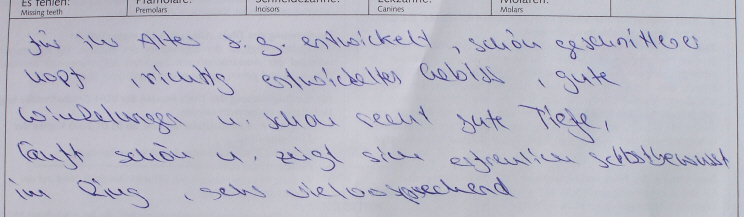 Es fehlen: Prämolare: Schneidezähne: Eckzähne: Molaren:
Missing teeth Premolars Incisors Canines Molars
für ihr Alter s. g. entwickelt, schön geschnittener
Kopf, richtig entwickeltes Gebiss, gute
Winkelungen u. schon recht gute Tiefe,
läuft schön u. zeigt sich erfreulich selbstbewusst
im Ring, sehr vielversprechend